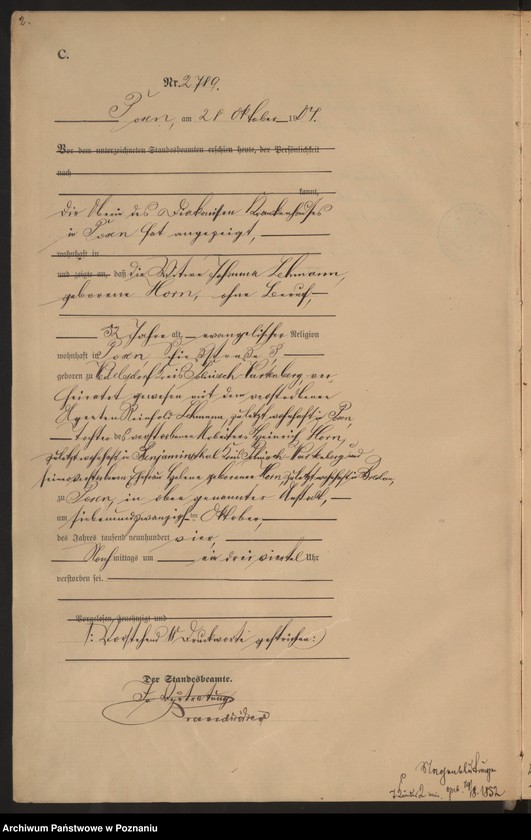 2.
C.
Nr. 2789.
Posen, am 28 Oktober 1904.
Vor dem unterzeichneten Standesbeamten erschien heute, der Persönlichkeit
nach
kannt,
die Oberin des Diakonissen Krankenhauses
in Posen hat angezeigt,
wohnhaft in
und zeigte an, daß die Witwe Johanna Lehmann,
geborene Horn, ohne Beruf,
52 Jahre alt, evangelischer Religion
wohnhaft in Posen
geboren zu Kreis Polnisch Wartenberg, ver-
heiratet gewesen mit dem verstorbenen
Agenten Reinhold Lehmann, zuletzt wohnhaft in Posen,
Tochter des verstorbenen Arbeiters Heinrich Horn,
zuletzt wohnhaft in Benjaminsthal Kreis Polnisch Wartenberg und
seiner verstorbenen Ehefrau Helene, geborenen zuletzt wohnhaft in
zu Posen, in oben genannter Anstalt,
am siebenundzwanzigsten Oktober,
des Jahres tausend neunhundert vier,
Nachmittags um ein drei viertel Uhr
verstorben sei.
Vorgelesen, genehmigt und
/: Vorstehend Druckworte gestrichen :/
Der Standesbeamte.
In Vertretung
Magenblutungen
2 geb. /8. 1852
Archiwum Państwowe w Poznaniu